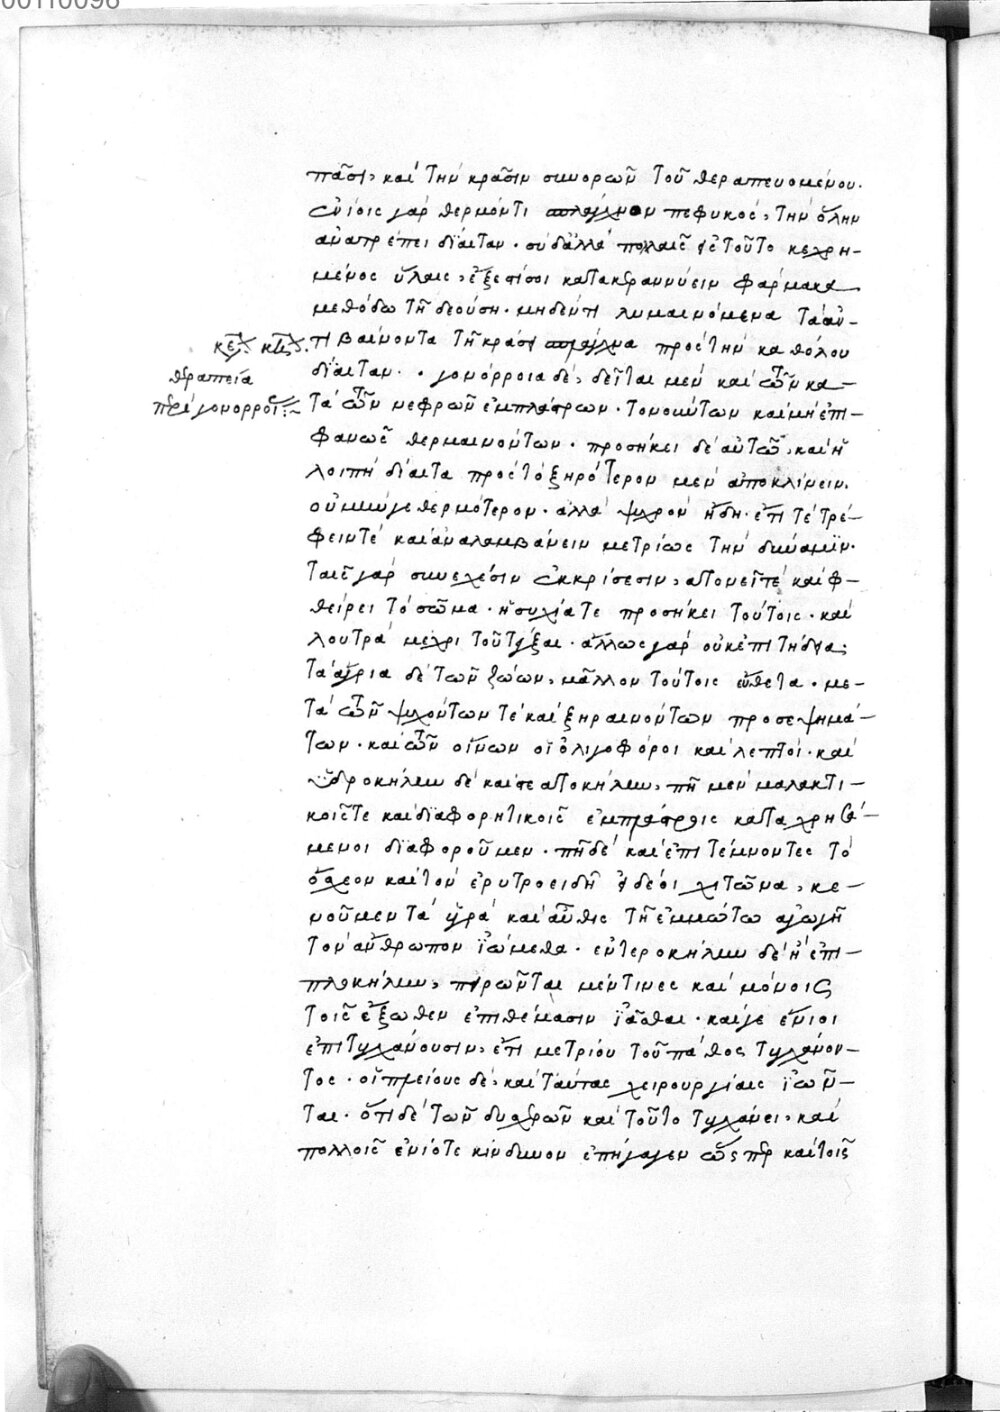 πᾶσι, καὶ τὴν κρᾶσιν συνορῶν τοῦ θεραπευομένου.
ἐνίοις γὰρ θερμόν τι σπλάγχνον πεφυκός, τὴν ὅλην
ἀνατρέπει δίαιταν. σὺ δ' ἀλλὰ πολλαῖς εἰς τοῦτο κεχρη-
μένος ὕλαις, ἐξέσται σοι κατακεραννύειν φάρμακα
μεθόδω τῇ δεούσῃ. μηδέν τι λυμαινόμενα τἀ ἀν-
τιβαίνοντα τῇ κράσει σπλάγχνα πρὸς τὴν καθόλου
δίαιταν. γονόρροια δὲ, δεῖται μὲν καὶ τῶν κα-
θεραπεία
περὶ γονορροί
τὰ τῶν νεφρῶν ἐμπλάστρων. τονούντων καὶ μὴ ἐπι-
φανῶς θερμαινόντων. προσήκει δὲ αὐτῶ, καὶ ἡ
λοιπὴ δίαιτα πρὸς τὸ ξηρότερον μὲν ἀποκλίνειν.
οὐ μήν γε θερμότερον. ἀλλὰ ψυχρὸν ἤδη. ἔτι τὲ τρέ-
φειν τὲ καὶ ἀναλαμβάνειν μετρίως τὴν δύναμιν.
ταῖς γὰρ συνεχέσιν ἐκκρίσεσιν, ἀτονεῖ τὲ καὶ φ-
θείρει τὸ σῶμα. ἡσυχία τε προσήκει τούτοις. καὶ
λουτρὰ μέχρι τοῦ τέγξαι. ἄλλως γὰρ οὐκ ἐπιτήδεια;
τὰ ἄγρια δὲ τῶν ζώων, μᾶλλον τούτοις εὔθετα. με-
τὰ τῶν ψυχόντων τὲ καὶ ξηραινόντων προσεψημά-
των. καὶ τῶν οἴνων οἱ ὀλιγοφόροι καὶ λεπτοί. καὶ
ὑδροκήλην δὲ καὶ στεατοκήλην, πῆ μὲν μαλακτι-
κοῖς τε καὶ διαφορητικοῖς ἐμπλάστροις καταχρησά-
μενοι διαφοροῦμεν. πῆ δὲ καὶ ἐπιτέμνοντες τὸ
ὄσχεον καὶ τὸν ἐρυτροειδῆ χιτῶνα, κε-
νοῦμεν τὰ ὑγρὰ καὶ αὖθις τῇ ἐμμώτω ἀγωγῇ
τὸν ἄνθρωπον ἰώμεθα. ἐντεροκήλην δὲ ἢ ἐπι-
πλοκήλην, πειρῶνται μέν τινες καὶ μόνοις
τοῖς ἔξωθεν ἐπιθέμασιν ἰᾶσθαι. καί γε ἔνιοι
ἐπιτυγχάνουσιν, ἔτι μετρίου τοῦ πάθος τυγχάνον-
τος. οἱ πλείους δὲ, καὶ ταύτας χειρουργίαις ἰῶν-
ται. ὅτι δὲ τῶν δυσχερῶν καὶ τοῦτο τυγχάνει, καὶ
πολλοῖς ἐνίοτε κίνδυνον ἐπήγαγεν ὥσπερ καὶ τοῖς